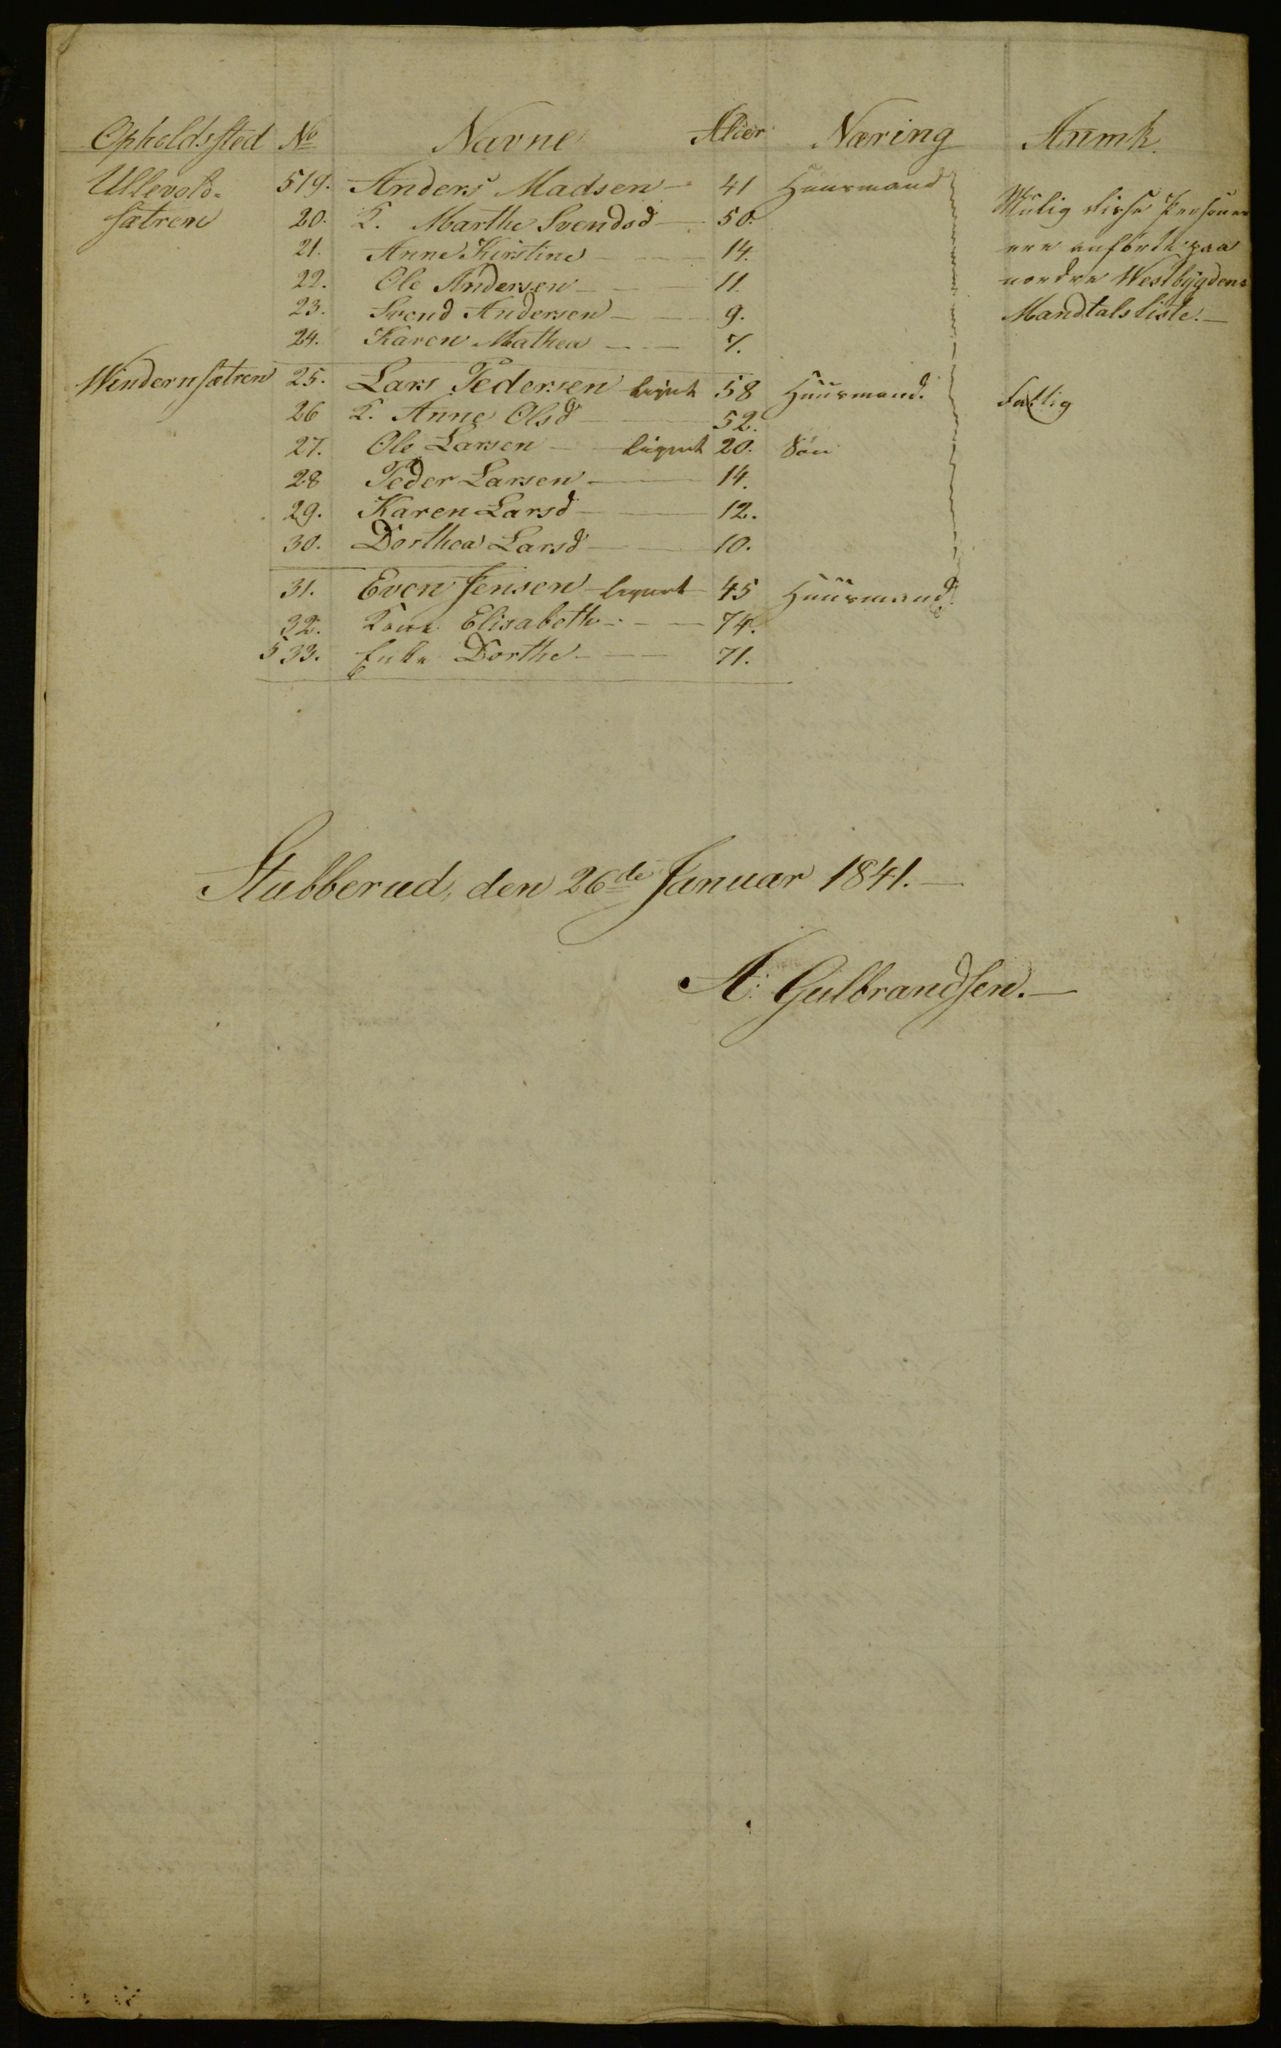 Opholdssted No Navne Alder Næring Anmk.
Ullevold- 519. Anders Madsen 41 Huusmand Mulig disse Personer
sætren 20. K. Marthe Svendsd 50. ere anförte paa
21. Anne Kirstine 14. nordre Westbygdens
22. Ole Andersen 11. Mandtalsliste.
23. Svend Andersen 9.
24. Karen Mathea 7.
Windernsætren 25. Lars Pedersen lignet 58 Huusmand. fattig
26 K. Anne Olsd 52.
27. Ole Larsen lignet 20. Sön
28 Peder Larsen 14.
29. Karen Larsd 12.
30. Dorthea Larsd 10.
31. Even Jensen lignet 45 Huusmand.
32. Kone Elisabeth 74.
533. Enke Dorthe 71.
Stubberud, den 26de Januar 1841.
A: Gulbrandsen.